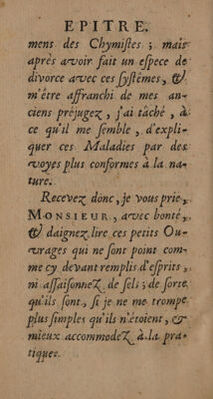 EPITRE.
mens des Chymiſtes ; mais
après avoir fait un eſpece de
divorce avec ces ſyſtêmes, &
m'être affranchi de mes an-
ciens préjugez, j'ai tâché, à
ce qu'il me ſemble, d'expli-
quer ces Maladies par des
voyes plus conformes à la na-
ture.
Recevez donc, je vous prie,
MONSIEUR, avec bonté,
& daignez lire ces petits Ou-
vrages qui ne ſont point com-
me cy devant remplis d'eſprits,
ni aſſaiſonnez de ſels ; de ſorte
qu'ils ſont, ſi je ne me trompe
plus ſimples qu'ils n'étoient, &
mieux accommodez à la pra-
tique.